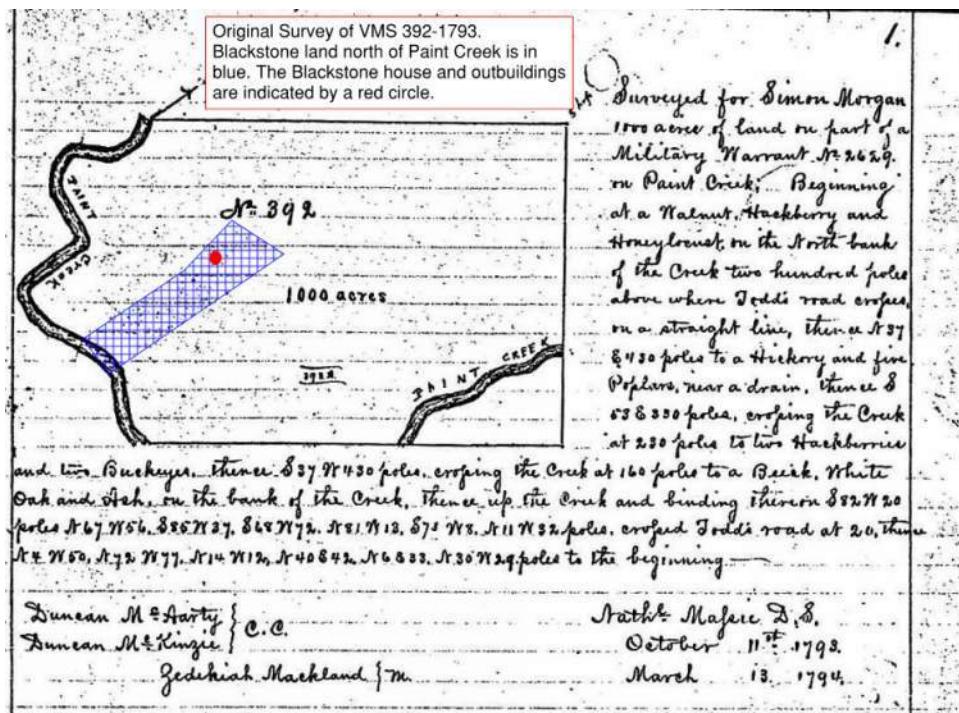 Original Survey of VMS 392-1793.
Blackstone land north of Paint Creek is in
blue. The Blackstone house and outbuildings
are indicated by a red circle.
1.
Surveyed for Simon Morgan
1000 acre of land on part of a
Military Warrant No 2629.
on Paint Creek; Beginning
at a Walnut, Hackberry and
Honeylocust, on the North bank
of the Creek two hundred poles
above where Todd's road crosses,
on a straight line, thence N 37
E 430 poles to a Hickory and five
Poplars, near a drain, thence S
53 E 330 poles, crossing the Creek
at 230 poles to two Hackberries
and two Buckeyes, thence S 37 W 430 poles, crossing the Creek at 160 poles to a Beick, White
Oak and Ash, on the bank of the Creek, thence up the Creek and binding thereon S 82 W 20
poles N 67 W 56, S 85 W 37, S 68 W 72, N 81 W 13, S 75 W 8, N 11 W 32 poles, crossed Todd's road at 20, thence
N 4 W 50, N 72 W 77, N 14 W 12, N 40 E 42, N 6 E 33, N 30 W 29 poles to the beginning
PAINT
CREEK
No 392
1000 acres
PAINT CREEK
Duncan Mc Aarty } C.C.
Duncan Mc Kinzie
Zedekiah Mackland } m.
Nathl Massie D.S.
October 11st 1793.
March 13 1794.